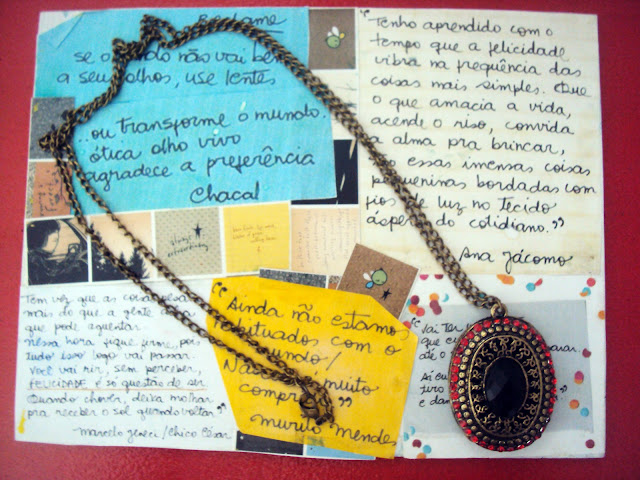 Reclame
se o mundo não vai bem
a seus olhos, use lentes
...ou transforme o mundo.
ótica olho vivo
agradece a preferência
Chacal
"Tenho aprendido com o
tempo que a felicidade
vibra na frequência das
coisas mais simples. Que
o que amacia a vida,
acende o riso, convida
a alma pra brincar,
essas imensas coisas
pequeninas bordadas com
fios de luz no tecido
áspero do cotidiano."
Ana Jácomo
Tem vez que as coisas pesam
mais do que a gente acha
que pode aguentar.
Nessa hora fique firme, pois
tudo isso logo vai passar.
Você vai rir, sem perceber,
FELICIDADE é só questão de ser.
Quando chover, deixa molhar,
pra receber o sol quando voltar."
Marcelo Jeneci / Chico César
"Ainda não estamos
habituados com o
mundo/
Nascer é muito
comprido"
Murilo Mendes
"Vai
que
até o